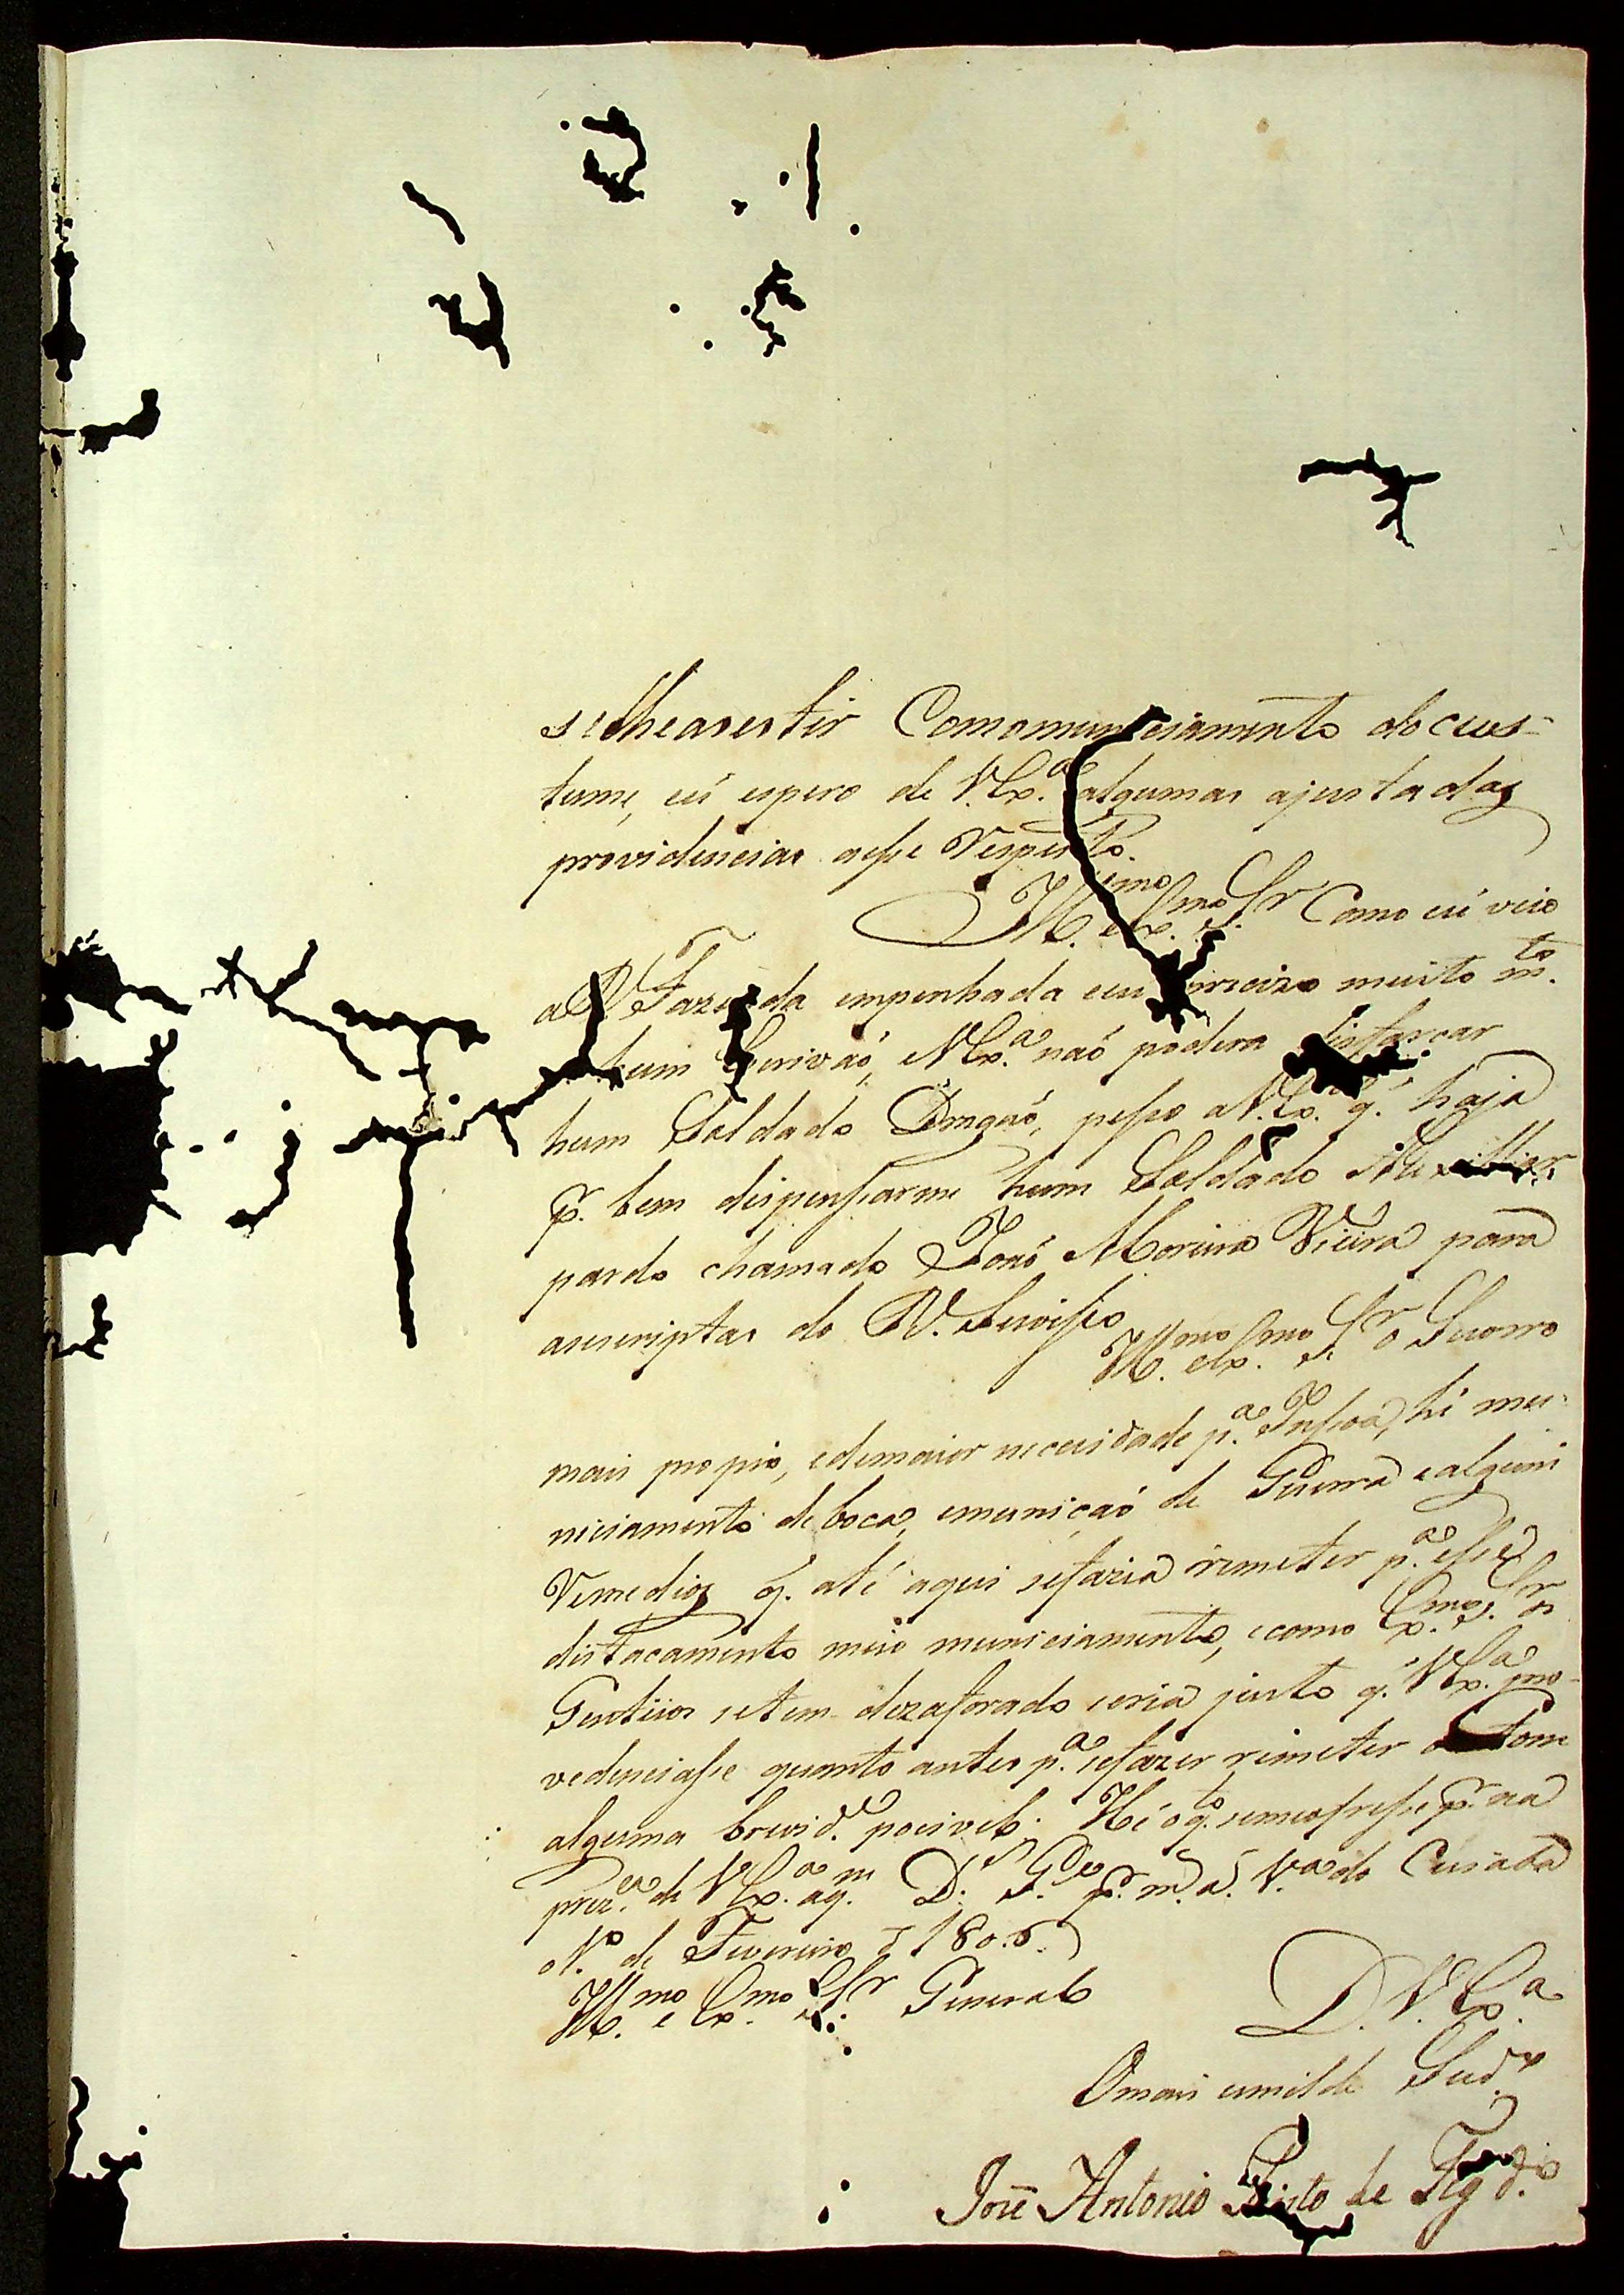 selheasestir Comomuniciamento docus=
tume, eú espero de V.Ex.ª algumas ajustadas
providencias aesse Respeito.
Ill.mo e Ex.mo S.r Como eú vejo
a R Fazenda empenhada em muito m.to
hum Escrivaó, e V.Ex.ª naó podera disfarçar
hum Soldado Dragaó, pesso a V.Ex.ª q. haja
p.r bem dispensarme hum Soldado Auxilliar
pardo chamado Joaó Moreira Vieira para
asescriptas do R. Servisso
Ill.mo e Ex.mo S.r o Secorro
mais propio, edemaior necessidade p.ª Insoa, hé mu-
niciamento de boca, emuniçaó de Guerra e alguns
Remedios q. até aqui sefazia remeter p.ª esse
distacamento meio municiamento, ecomo Ex.mo S.r os
Gentiios setem dezaforado seria justo q. V.Ex.ª pro-
vedenciasse quanto antes p.ª sefazer remeter com
alguma brevid.e pocivel. Hé o q.to semeofresse p.r na
prez.ca de V.Ex.ª aq.m D.s G.de p.r m.s a.s V.ª do Cuiabá
de Fevereiro de 1806.
Ill.mo e Ex.mo S.r General
D. V. Ex.ª
Omais umilde Sud.º
José Antonio Pinto de Fig.do